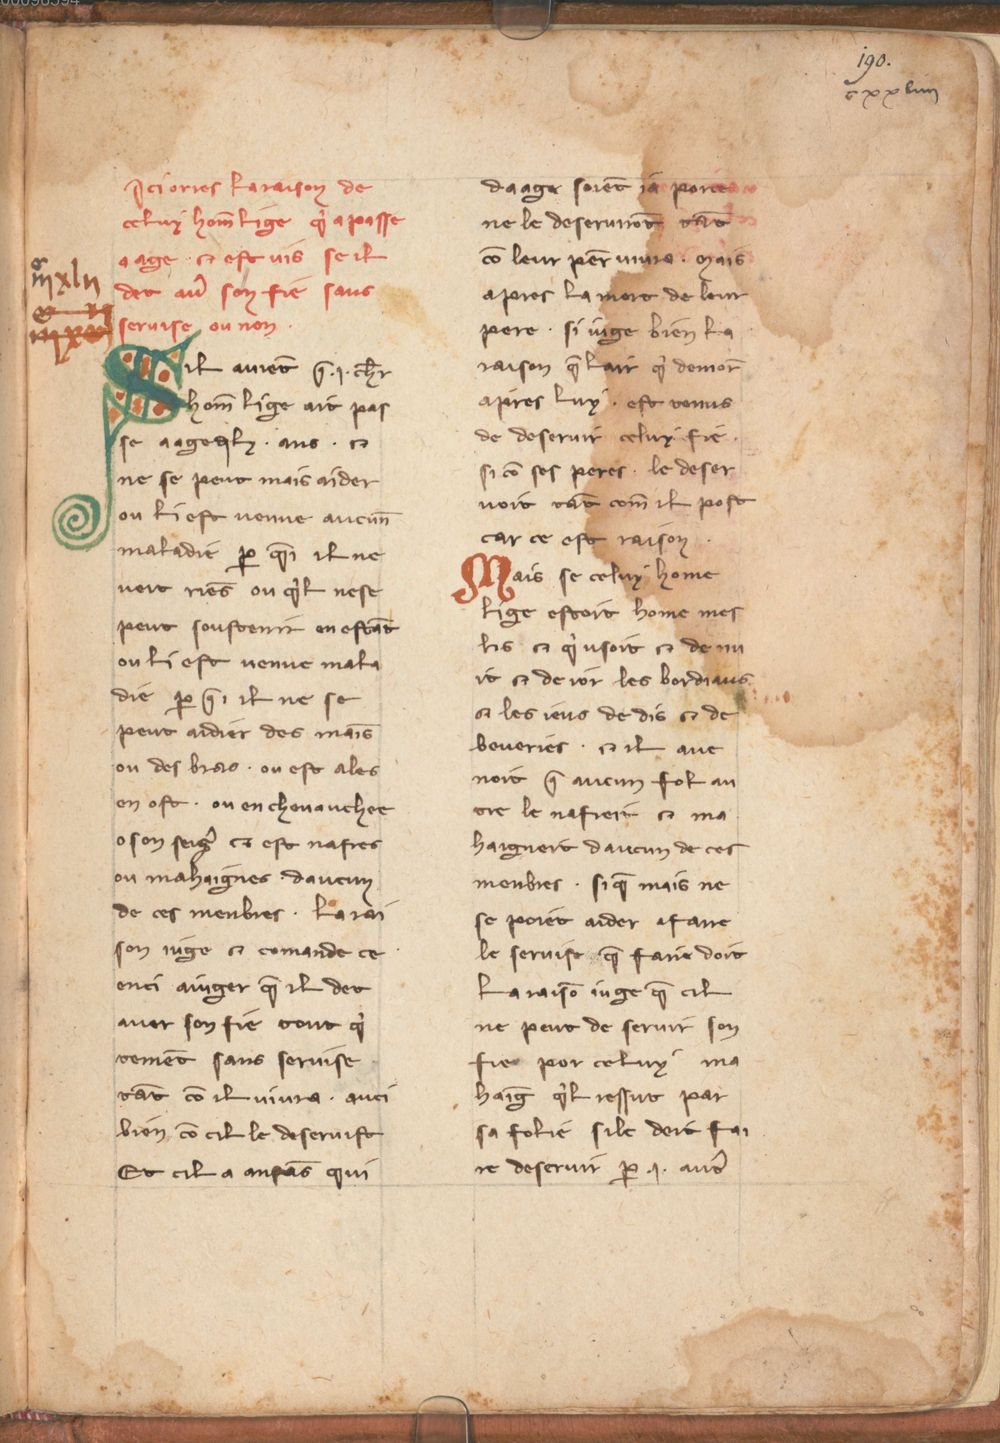 190.
cxxliiii
Ici ories la raison de
celuy hom̄ lige q̇ a passe
aage ⁊ est uis se il
det auͥ son fie sans
seruise ou non ·
mxlii
Sil auiet̄ q̄ ·i· chl̄r
hom̄ lige ait pas
se aage lx · ans · ⁊
ne se peut mais aider
ou li est uenue aucun̄
maladie ꝑ q̄i il ne
uoit riēs ou q̇l nese
peut soustenir en estāt
ou li est uenue mala
die ꝑ q̄i il ne se
peut aidier des māis
ou des bras · ou est ales
en ost · ou en cheuauchee
o son seigr̄ ⁊ est nafres
ou mahaignes daucun
de ces menbres · la rai
son iuge ⁊ comande ce
enci aiuger q̄ il det
auer son fie tout q̇
temēt sans seruise
tāt cō il uiura · auci
bien cō cil le deseruist
Et cil a anfās qui
daage soiēt ia porce
ne le deseruirōt tāt
cō leur per̄ uiura · Mais
apres la mort de leur
pere · si iuge bien la
raison q̄ lair q̇ demor̄
apres luy · est tenus
de deseruir celuy fie ·
si cō ses peres · le deser
uoit tāt com̄ il post
car ce est raison ·
Mais se celuy home
lige estoit home mes
lis ⁊ q̇ usoit ⁊ de nu
it ⁊ de ior les bordiaus
⁊ les ieus de dis ⁊ de
beueries · ⁊ il aue
noit q̄ aucun fol au
tre le nafreit ⁊ ma
haigneit daucun de ces
menbres · si q̄ mais ne
se poiet aider a faire
le seruise q̄ faire doit
La raisō iuge q̄ cil
ne peut de seruir son
fie por celuy ma
haiḡ q̇l ressut par
sa folie sile doit fai
re deseruir ꝑ ·i· autͤ